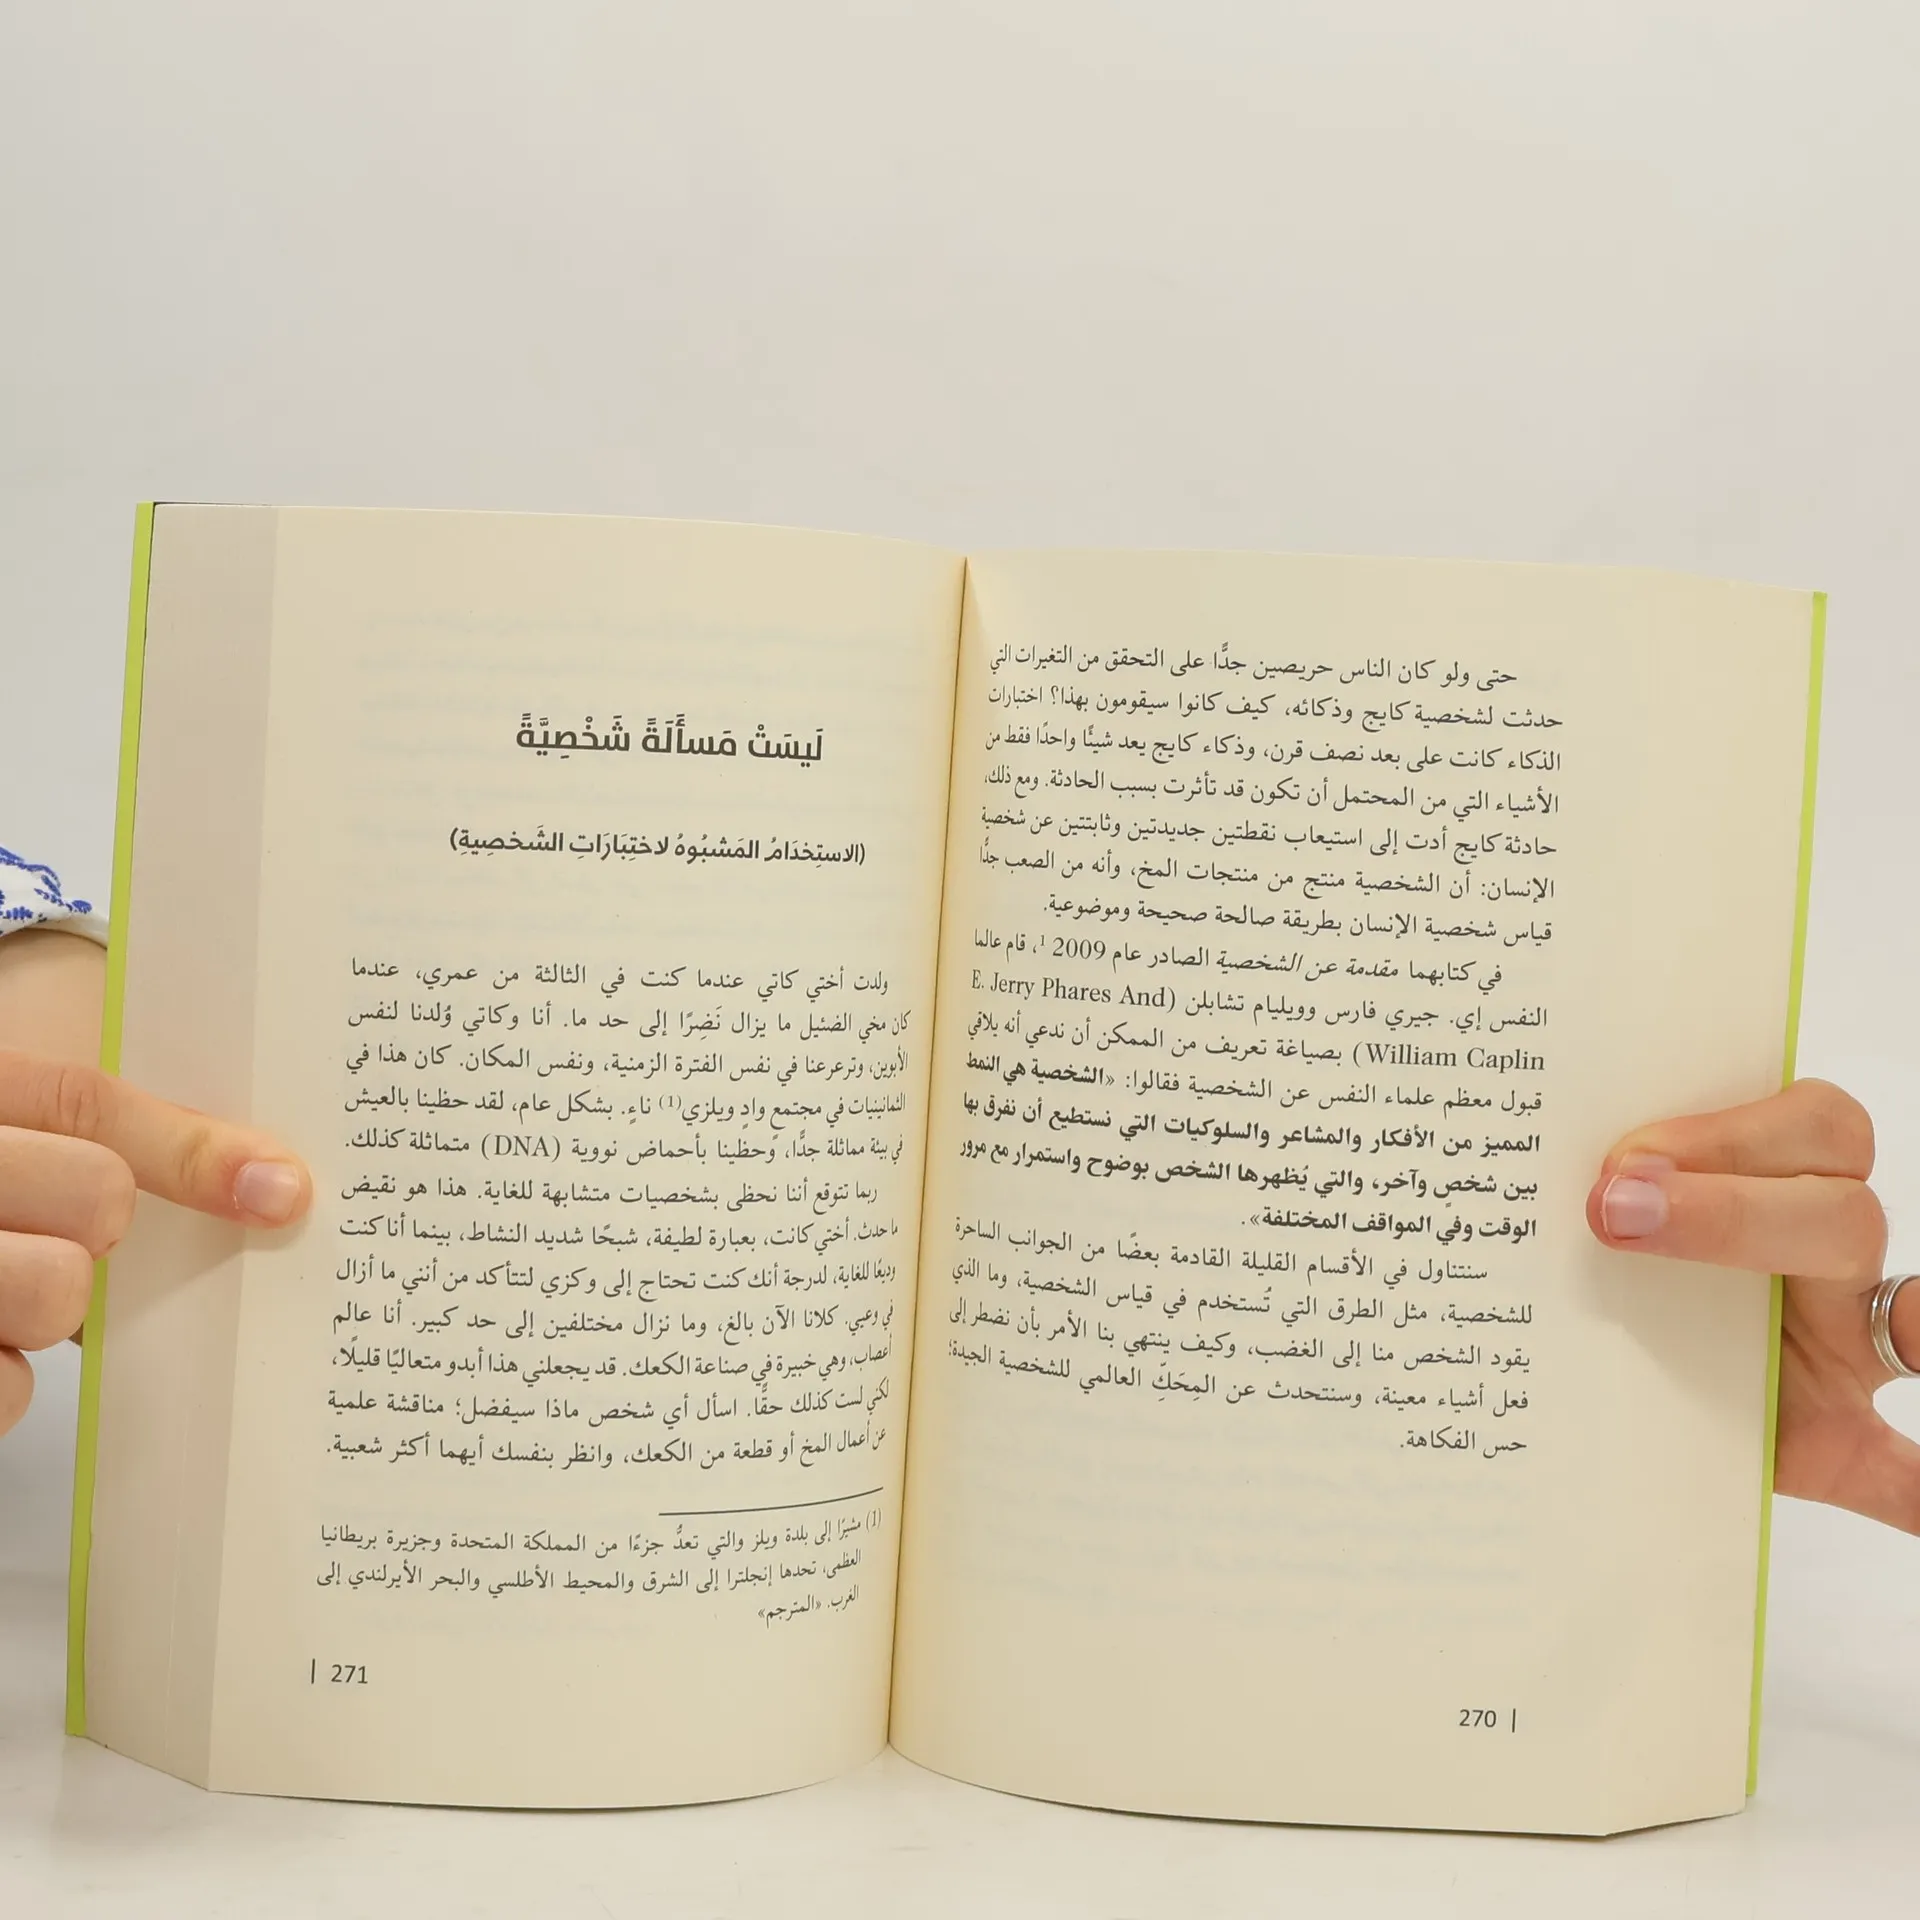 حتى ولو كان الناس حريصين جدًّا على التحقق من التغيرات التي
حدثت لشخصية كايج وذكائه، كيف كانوا سيقومون بهذا؟ اختبارات
الذكاء كانت على بعد نصف قرن، وذكاء كايج يعد شيئًا واحدًا فقط من
الأشياء التي من المحتمل أن تكون قد تأثرت بسبب الحادثة. ومع ذلك،
حادثة كايج أدت إلى استيعاب نقطتين جديدتين وثابتتين عن شخصية
الإنسان: أن الشخصية منتج من منتجات المخ، وأنه من الصعب جدًّا
قياس شخصية الإنسان بطريقة صالحة صحيحة وموضوعية.
في كتابهما مقدمة عن الشخصية الصادر عام 2009 ¹، قام عالما
النفس إي. جيري فارس وويليام تشابلن (E. Jerry Phares And
William Caplin) بصياغة تعريف من الممكن أن ندعي أنه يلاقي
قبول معظم علماء النفس عن الشخصية فقالوا: «الشخصية هي النمط
المميز من الأفكار والمشاعر والسلوكيات التي نستطيع أن نفرق بها
بين شخصٍ وآخر، والتي يُظهرها الشخص بوضوح واستمرار مع مرور
الوقت وفي المواقف المختلفة».
سنتناول في الأقسام القليلة القادمة بعضًا من الجوانب الساحرة
للشخصية، مثل الطرق التي تُستخدم في قياس الشخصية، وما الذي
يقود الشخص منا إلى الغضب، وكيف ينتهي بنا الأمر بأن نضطر إلى
فعل أشياء معينة، وسنتحدث عن المِحَكِّ العالمي للشخصية الجيدة؛
حس الفكاهة.
270 |
لَيسَتْ مَسأَلَةً شَخْصِيَّةً
(الاستِخدَامُ المَشبُوهُ لاختِبَارَاتِ الشَّخصِيةِ)
ولدت أختي كاتي عندما كنت في الثالثة من عمري، عندما
كان مخي الضئيل ما يزال نَضِرًا إلى حد ما. أنا وكاتي وُلدنا لنفس
الأبوين، وترعرعنا في نفس الفترة الزمنية، ونفس المكان. كان هذا في
الثمانينيات في مجتمع وادٍ ويلزي(1) ناءٍ. بشكل عام، لقد حظينا بالعيش
في بيئة مماثلة جدًّا، وحظينا بأحماض نووية (DNA) متماثلة كذلك.
ربما نتوقع أننا نحظى بشخصيات متشابهة للغاية. هذا هو نقيض
ما حدث. أختي كانت، بعبارة لطيفة، شبحًا شديد النشاط، بينما أنا كنت
وديعًا للغاية، لدرجة أنك كنت تحتاج إلى وكزي لتتأكد من أنني ما أزال
في وعيي. كلانا الآن بالغ، وما نزال مختلفين إلى حد كبير. أنا عالم
أعصاب، وهي خبيرة في صناعة الكعك. قد يجعلني هذا أبدو متعاليًا قليلًا،
لكني لست كذلك حقًّا. اسأل أي شخص ماذا سيفضل؛ مناقشة علمية
عن أعمال المخ أو قطعة من الكعك، وانظر بنفسك أيهما أكثر شعبية.
(1) مشيرًا إلى بلدة ويلز والتي تعدُّ جزءًا من المملكة المتحدة وجزيرة بريطانيا
العظمى، تحدها إنجلترا إلى الشرق والمحيط الأطلسي والبحر الأيرلندي إلى
الغرب. «المترجم»
| 271